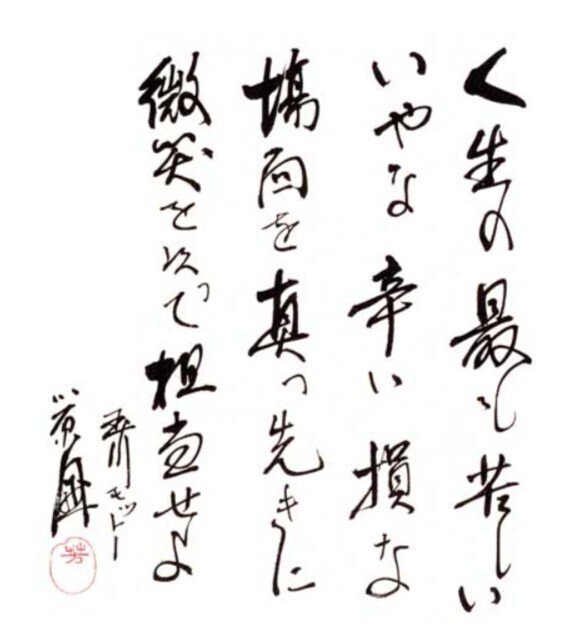 人生の最も苦しい
いやな辛い損な
場面を真っ先きに
微笑を以って担当せよ
玉川モットー
小原國
芳